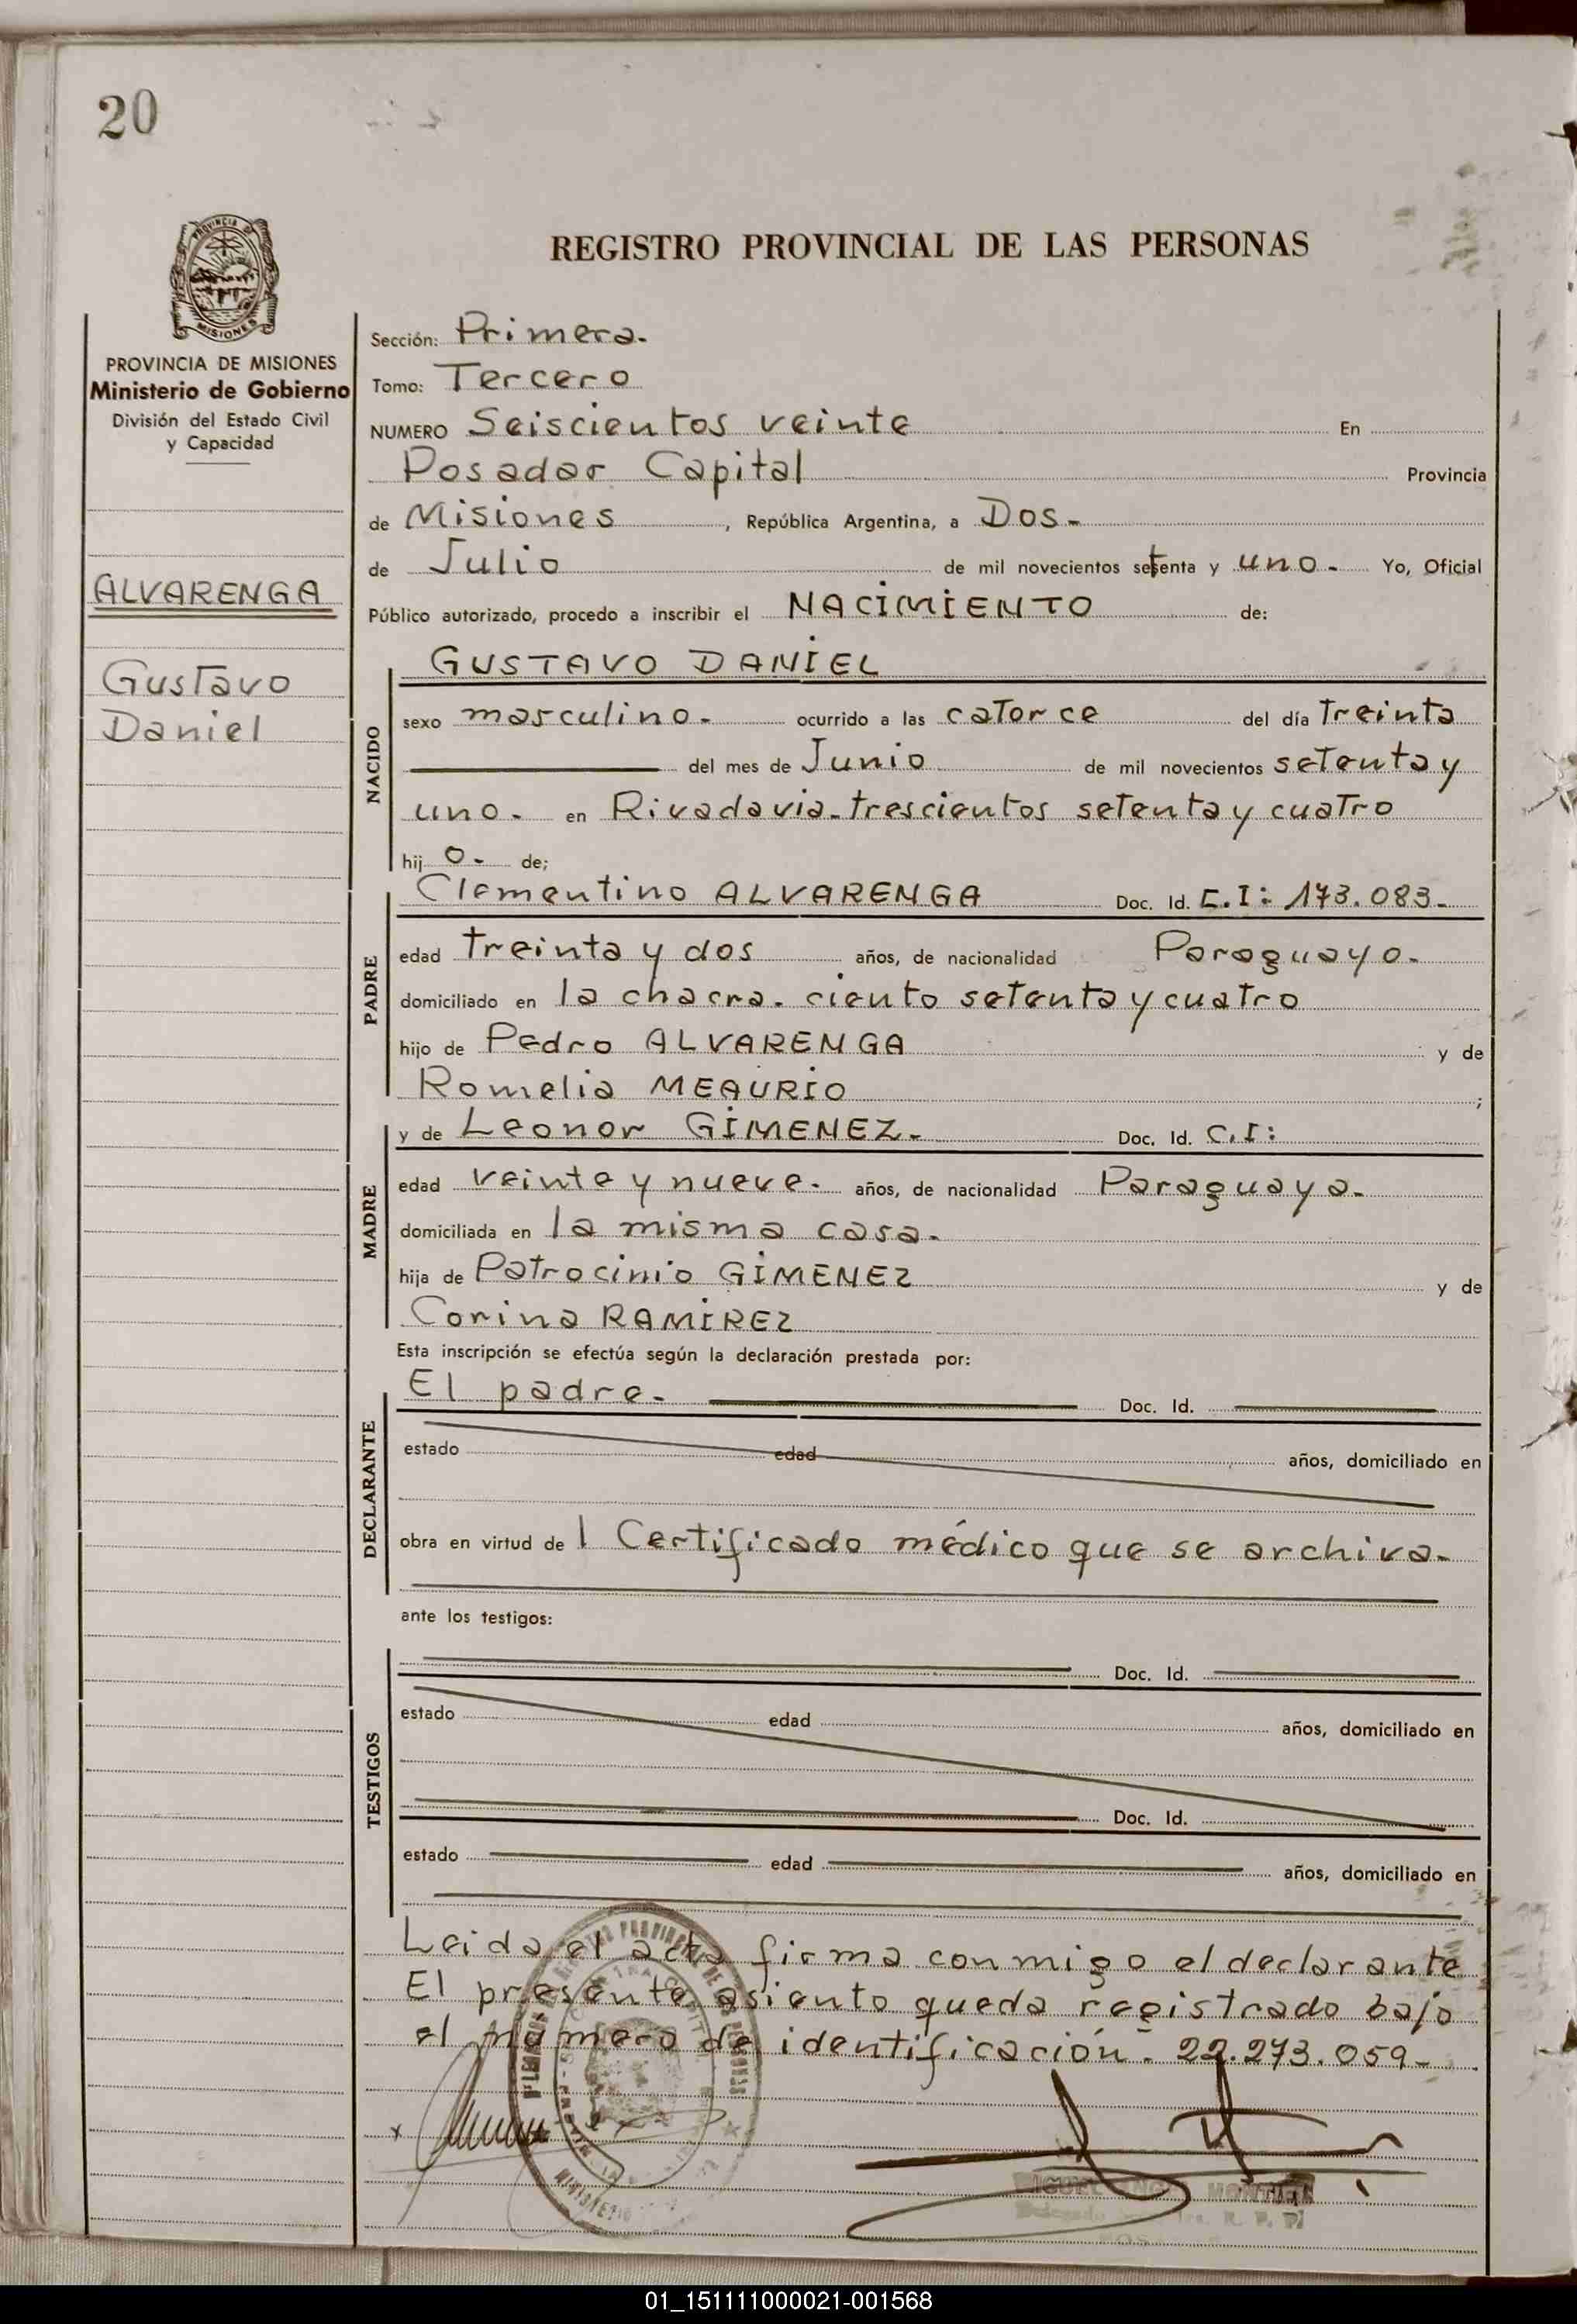 20
REGISTRO PROVINCIAL DE LAS PERSONAS
PROVINCIA DE MISIONES
Ministerio de Gobierno
División del Estado Civil
y Capacidad
ALVARENGA
Gustavo
Daniel
Sección: Primera.
Tomo: Tercero
NUMERO Seiscientos veinte En
Posadas Capital Provincia
de Misiones, República Argentina, a Dos-
de Julio de mil novecientos setenta y uno. Yo, Oficial
Público autorizado, procedo a inscribir el NACIMIENTO de:
NACIDO
GUSTAVO DANIEL
sexo masculino. ocurrido a las catorce del día treinta
del mes de Junio de mil novecientos setenta y
uno. en Rivadavia-trescientos setenta y cuatro
hij o. de;
PADRE
Clementino ALVARENGA Doc. Id. C.I: 173.083.
edad treinta y dos años, de nacionalidad Paraguayo.
domiciliado en la chacra. ciento setenta y cuatro
hijo de Pedro ALVARENGA y de
Romelia MEAURIO ;
MADRE
y de Leonor GIMENEZ. Doc. Id. C.I:
edad veinte y nueve. años, de nacionalidad Paraguaya.
domiciliada en la misma casa.
hija de Patrocinio GIMENEZ y de
Corina RAMIREZ
Esta inscripción se efectúa según la declaración prestada por:
DECLARANTE
El padre. Doc. Id.
estado edad años, domiciliado en
obra en virtud de l Certificado médico que se archiva.
ante los testigos:
TESTIGOS
Doc. Id.
estado edad años, domiciliado en
Doc. Id.
estado edad años, domiciliado en
Leida el acta firma conmigo el declarante
El presente asiento queda registrado bajo
el número de identificación. 22.273.059-
MONTIEL
01_151111000021-001568